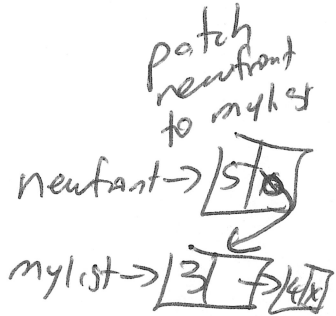 patch
newfront
to mylist
newfront → 5
mylist → 3 → 4 x